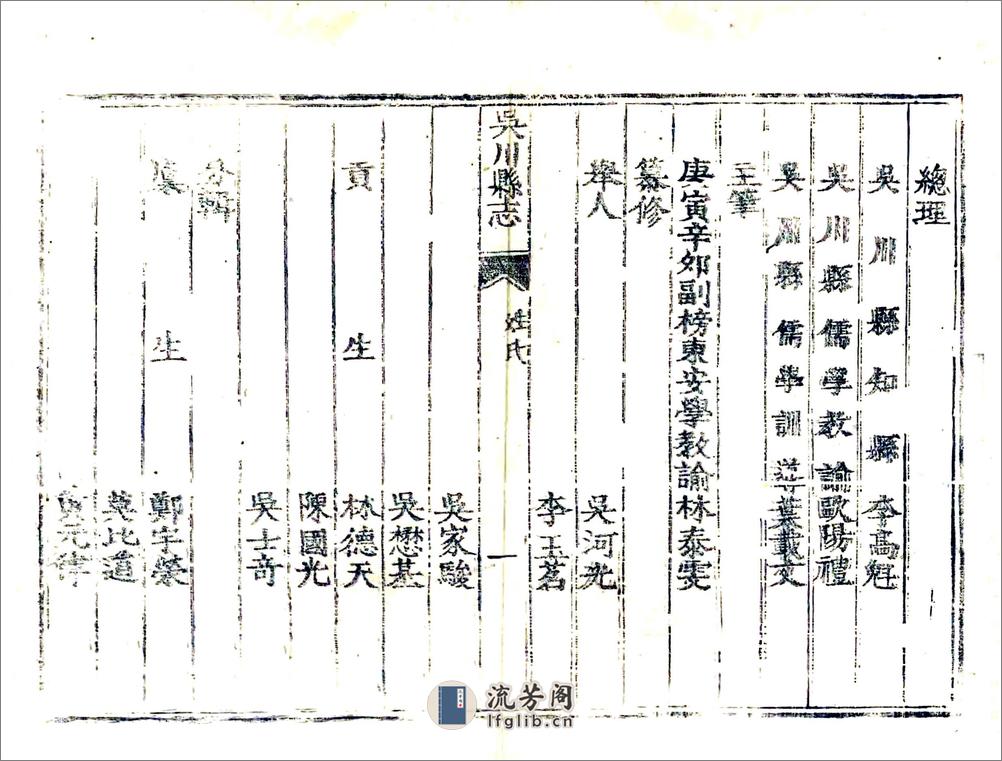 總理
吳川縣知縣李高魁
吳川縣儒學教諭歐陽禮
吳川縣儒學訓導葉載文
主筆
庚寅辛卯副榜東安學教諭林泰雯
纂修
舉人 吳河光
李玉茗
吳川縣志 姓氏 一
吳家駿
吳懋基
貢生 林德天
陳國光
吳士奇
分輯
生 鄭宇榮
莫比道
元
流芳阁
lfglib.cn